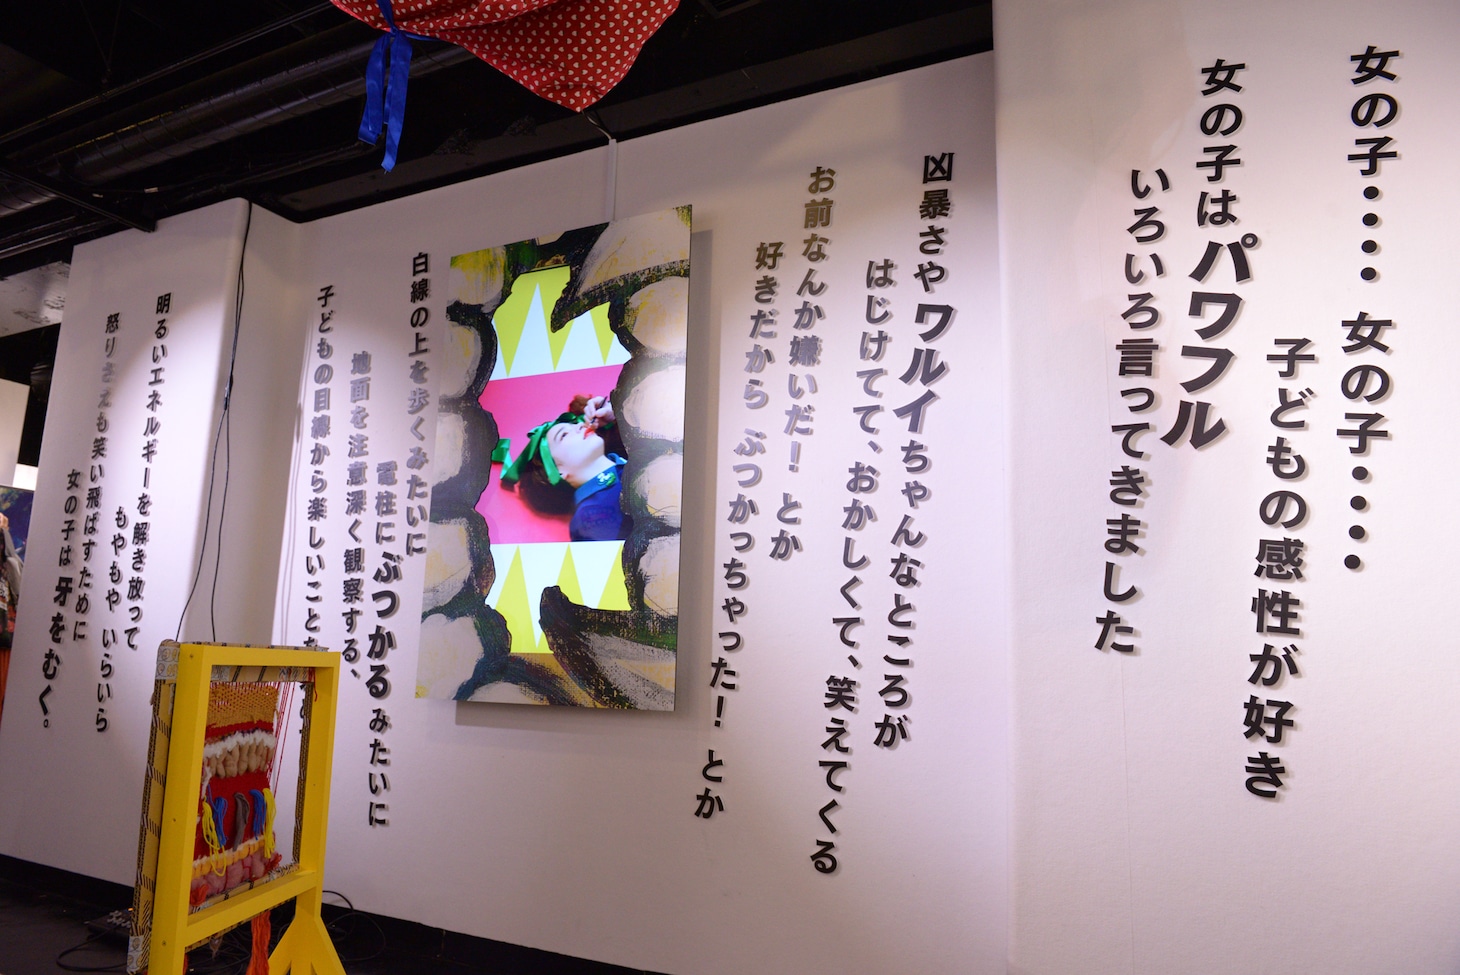 女の子・・・・ 女の子・・・・
子どもの感性が好き
女の子はパワフル
いろいろ言ってきました
凶暴さやワルイちゃんなところが
はじけてて、おかしくて、笑えてくる
お前なんか嫌いだ！ とか
好きだから ぶつかっちゃった！ とか
白線の上を歩くみたいに
電柱にぶつかるみたいに
地面を注意深く観察する、
子どもの目線から楽しいことを
明るいエネルギーを解き放って
もやもや いらいら
怒りさえも笑い飛ばすために
女の子は 牙をむく。